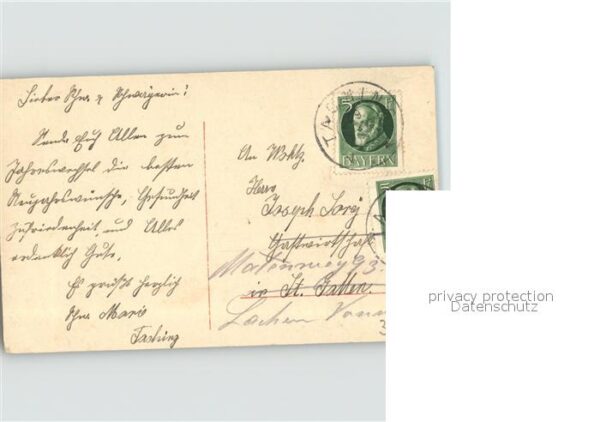 Lieber Schw. & Schwägerin!
Sende Euch Allen zum
Jahreswechsel die besten
Neujahrswünsche, Gesundheit
Zufriedenheit, und Alles
erdenklich Gute.
Es grüßt herzlich
Marie
An
Herrn
Joseph
Gastwirtschaft
in St. Gallen.
Lachen
BAYERN
privacy protection
Datenschutz